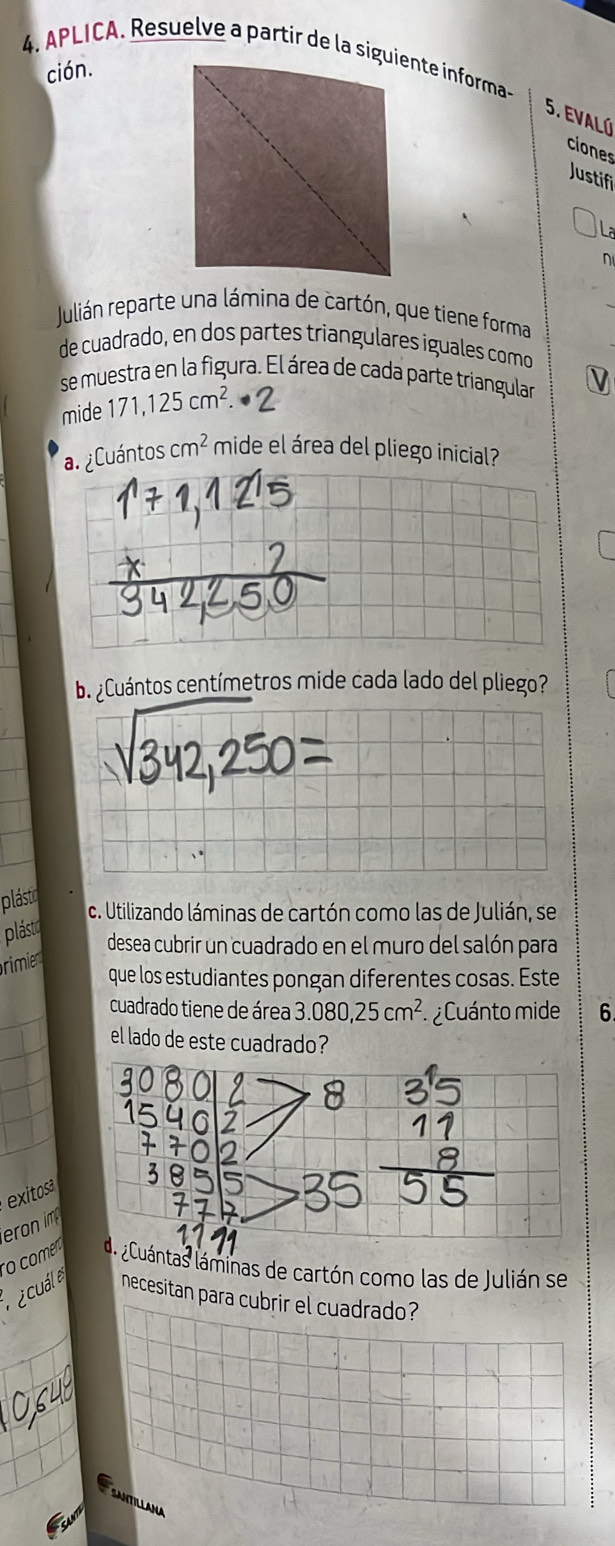 4. APLICA. Resuelve a partir de la siguiente informa-
ción.
Julián reparte una lámina de cartón, que tiene forma
de cuadrado, en dos partes triangulares iguales como
se muestra en la figura. El área de cada parte triangular
mide 171,125 cm². • 2
a. ¿Cuántos cm² mide el área del pliego inicial?
171,1215
x 2
342,250
b. ¿Cuántos centímetros mide cada lado del pliego?
√342,250 =
c. Utilizando láminas de cartón como las de Julián, se
desea cubrir un cuadrado en el muro del salón para
que los estudiantes pongan diferentes cosas. Este
cuadrado tiene de área 3.080,25 cm². ¿Cuánto mide
el lado de este cuadrado?
3080 2 8 35
1540 2 11
770 2 8
385 5 35 55
77 7
11 11
d. ¿Cuántas láminas de cartón como las de Julián se
necesitan para cubrir el cuadrado?
SANTILLANA
5. EVALÚ
ciones
Justifi
La
V
6.
plásti
plásti
rimien
exitosa
ieron imp
ro comer
, ¿cuál es
10,648